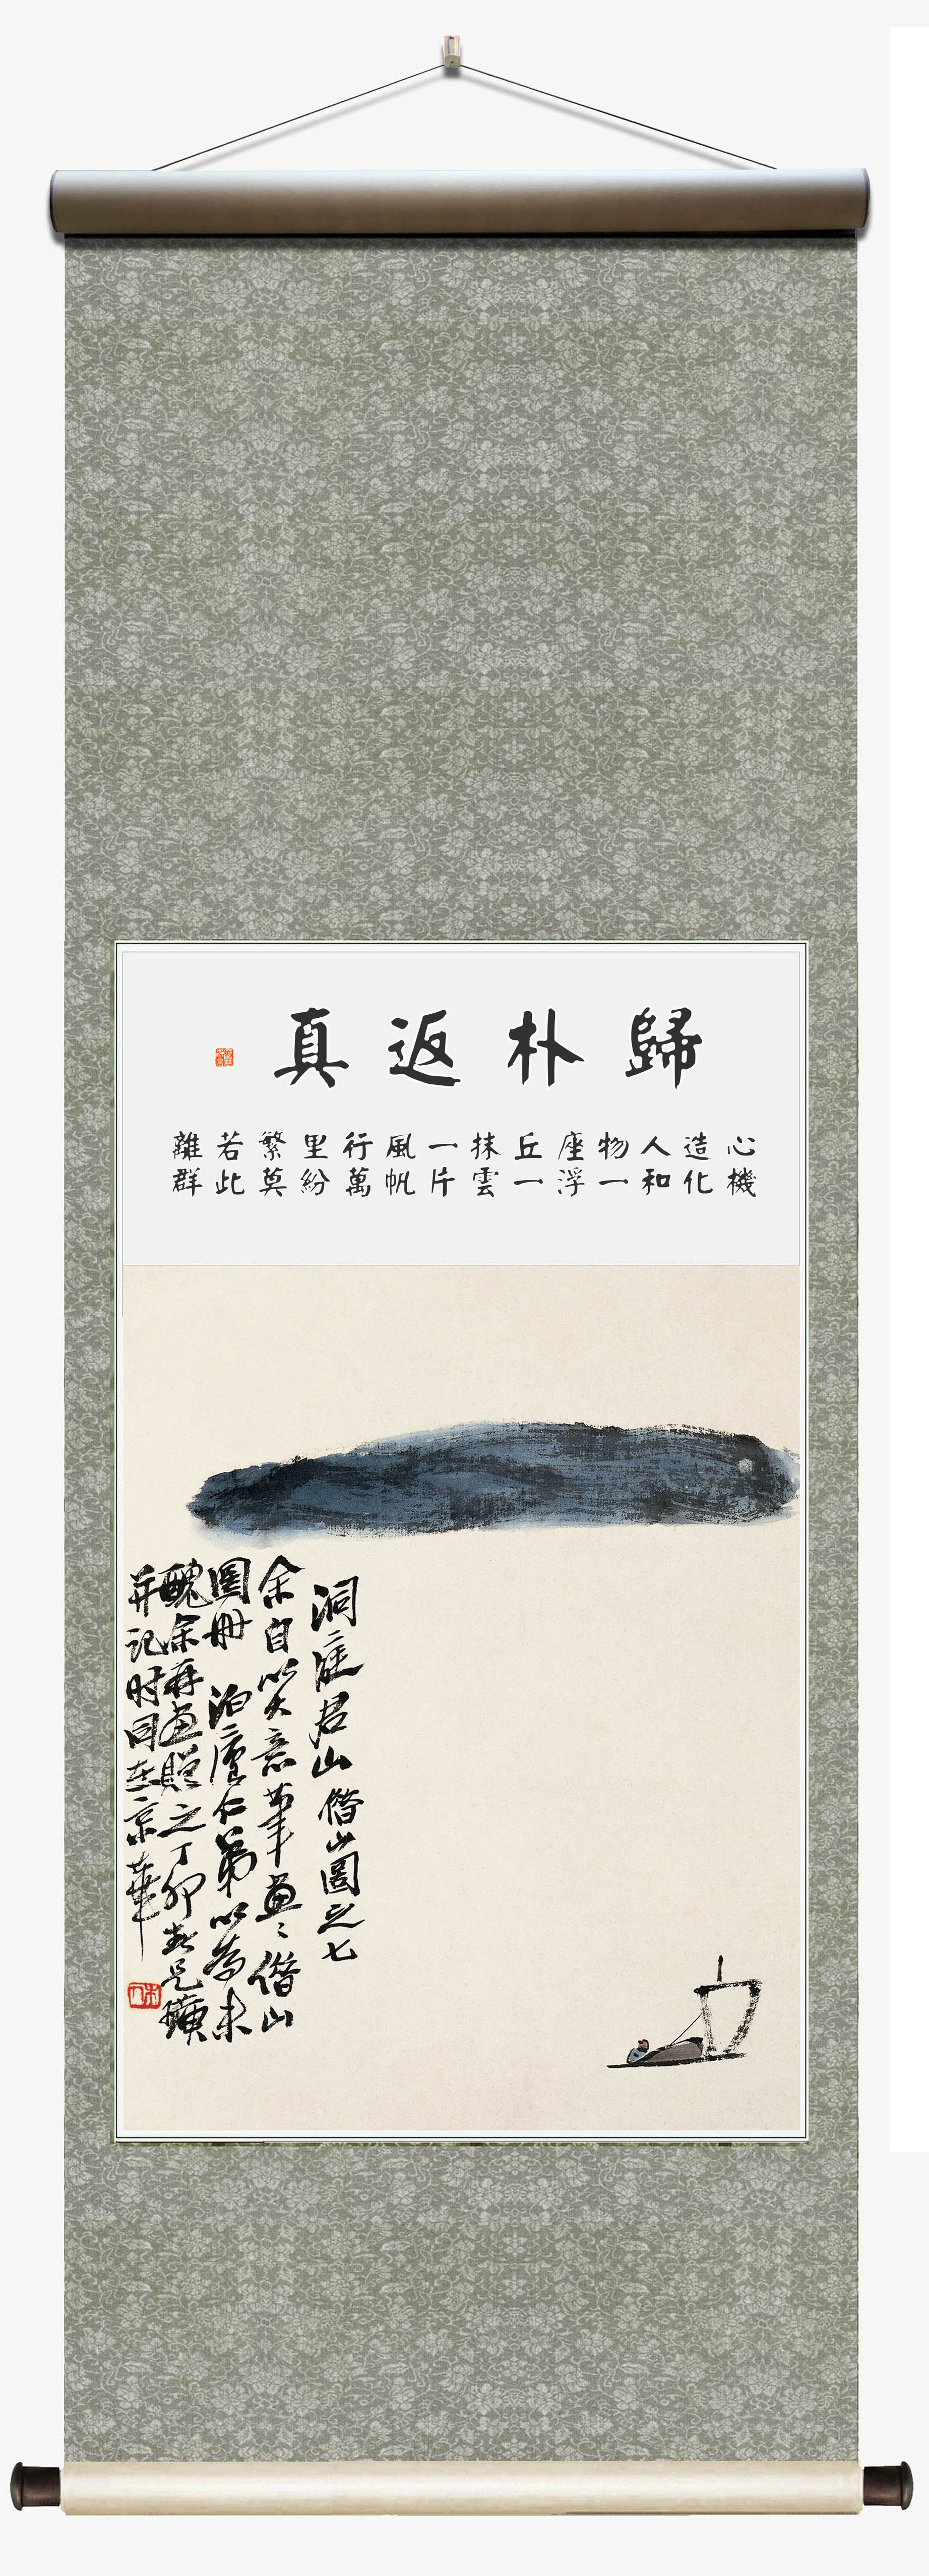 歸朴返真
心機
造化
人和
物一
座浮
丘一
抹雲
一片
風帆
行萬
里紛
繁莫
若此
離群
洞庭君山借山圖之七
余自以大意筆畫〻借山
圖冊 泊廬仁弟以為未
醜余再畫贈之丁卯春兄璜
并記时同在京華
木人